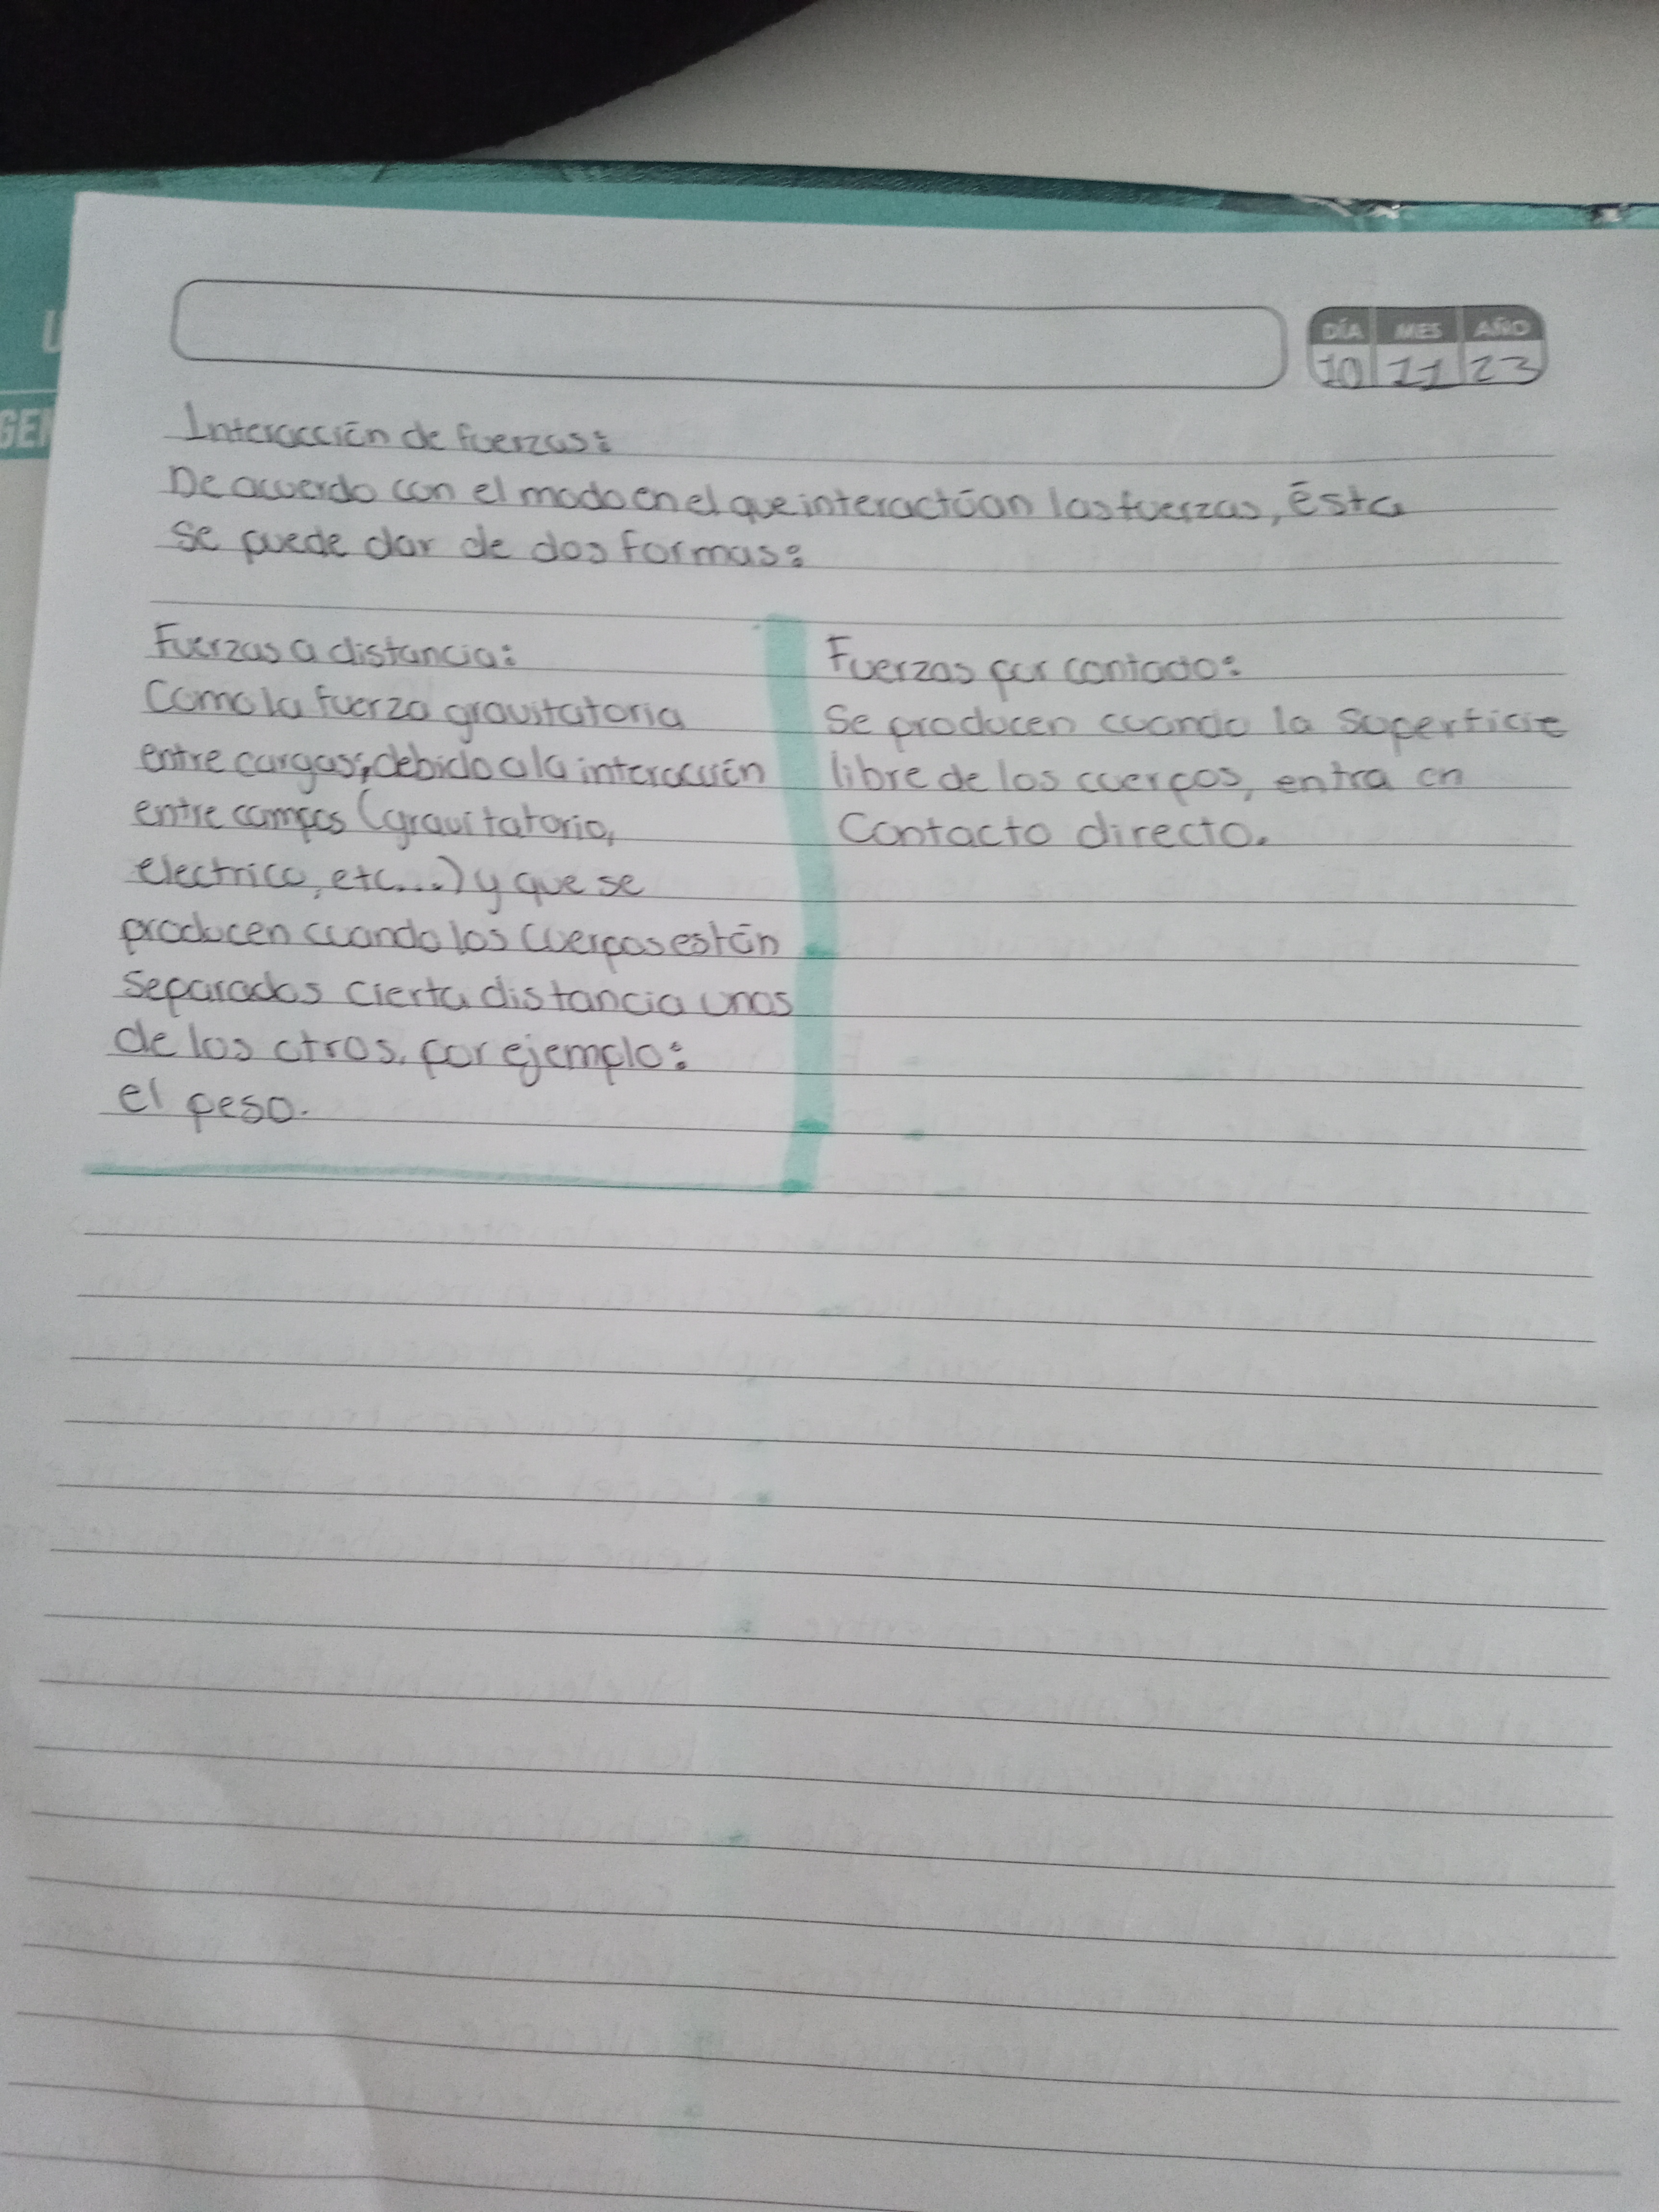 DÍA MES AÑO
10 11 23
Interacción de fuerzas:
De acuerdo con el modo en el que interactúan las fuerzas, ésta
se puede dar de dos formas:
Fuerzas a distancia:
Como la fuerza gravitatoria
entre cargas, debido a la interacción
entre campos (gravitatorio,
electrico, etc...) y que se
producen cuando los cuerpos están
separados cierta distancia unos
de los otros. por ejemplo:
el peso.
Fuerzas por contacto:
Se producen cuando la superficie
libre de los cuerpos, entra en
Contacto directo.